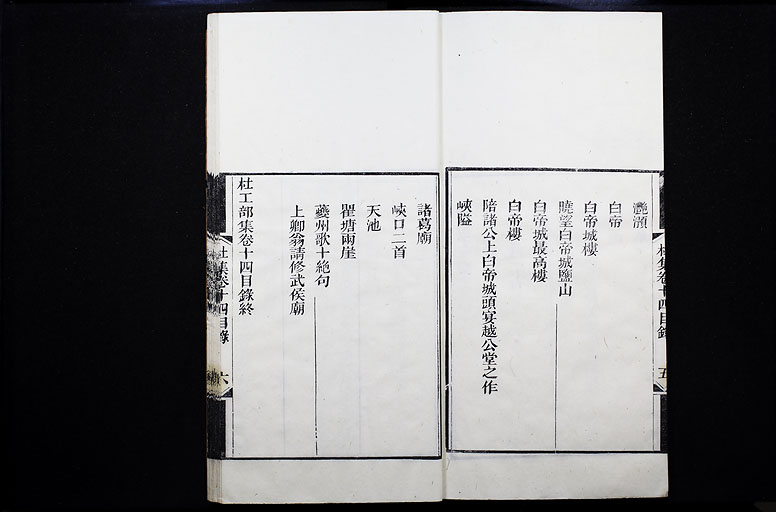 杜集卷十四目錄
五
灩澦
白帝
白帝城樓
曉望白帝城鹽山
白帝城最高樓
白帝樓
陪諸公上白帝城頭宴越公堂之作
峽隘
諸葛廟
峽口二首
天池
瞿塘兩崖
夔州歌十絕句
上卿翁請修武侯廟
杜工部集卷十四目錄終
杜集卷十四目錄
六